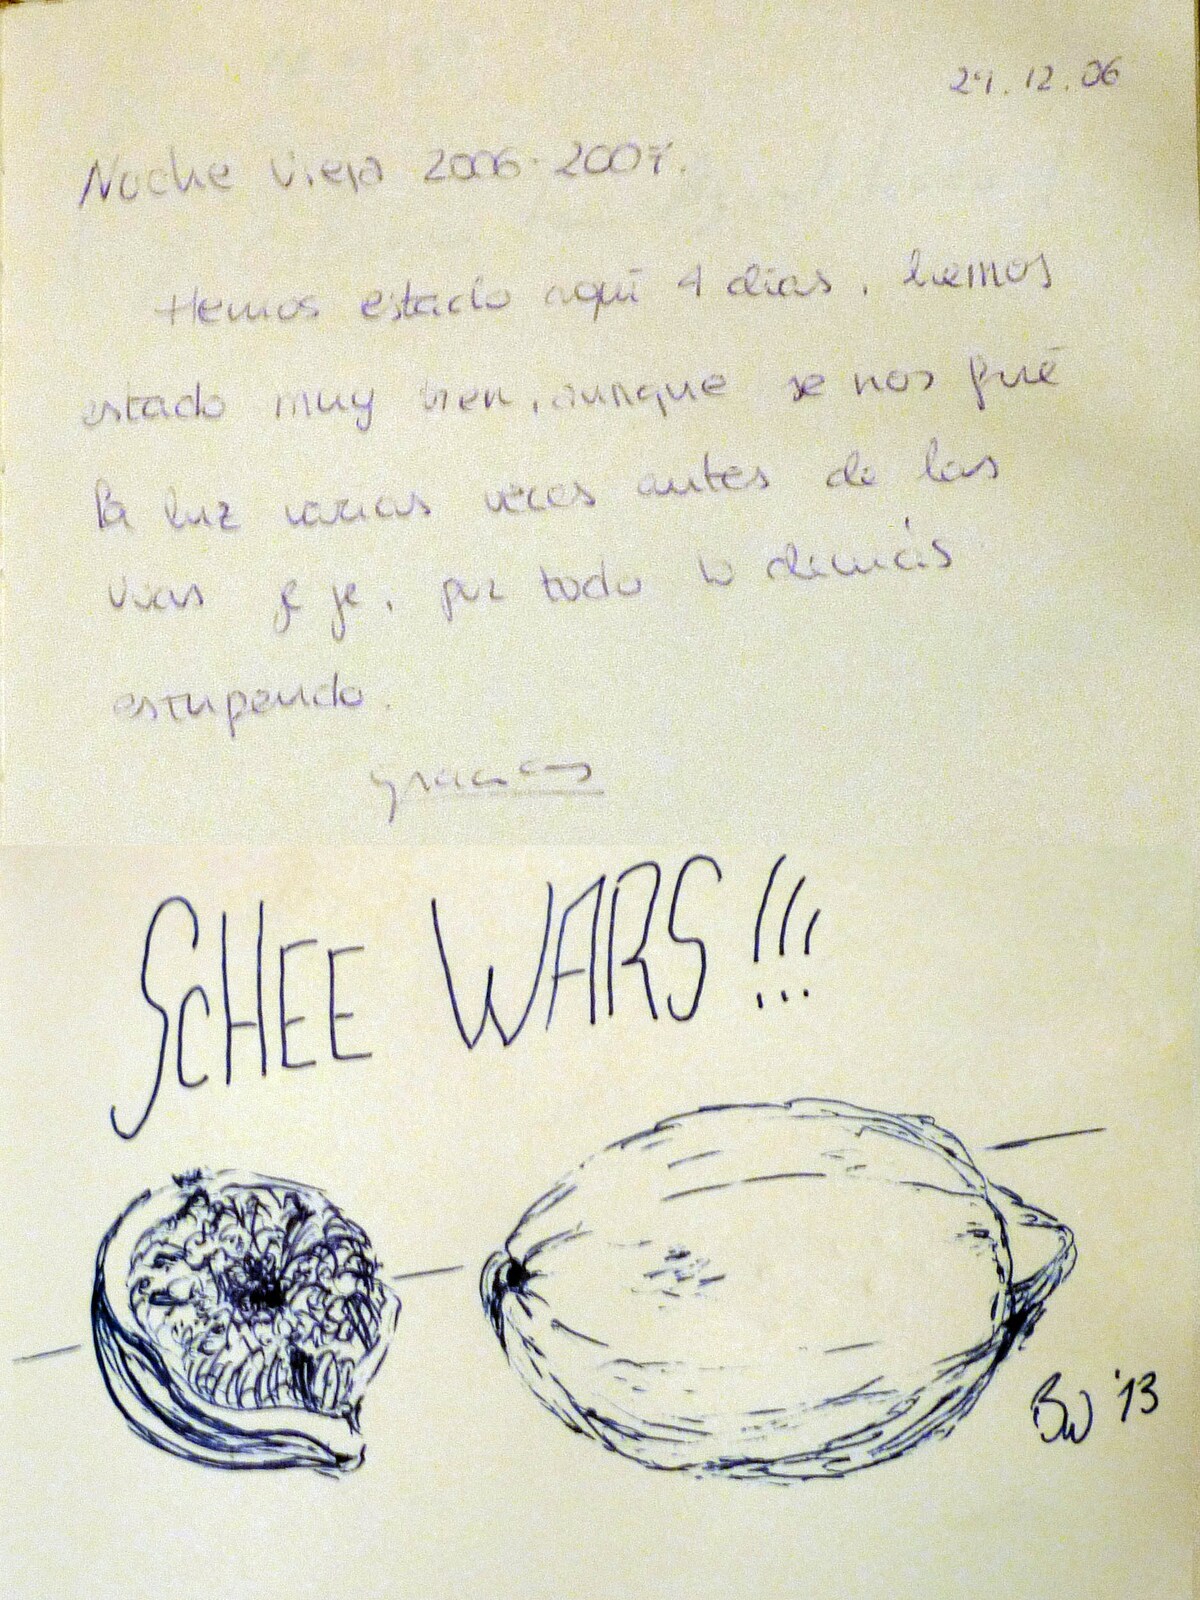 29.12.06
Noche Vieja 2006-2007.
Hemos estado aquí 4 dias, hemos
estado muy bien, aunque se nos fué
la luz varias veces antes de las
uvas je je, por todo lo demás
estupendo.
gracias
SCHEE WARS!!!
BW '13